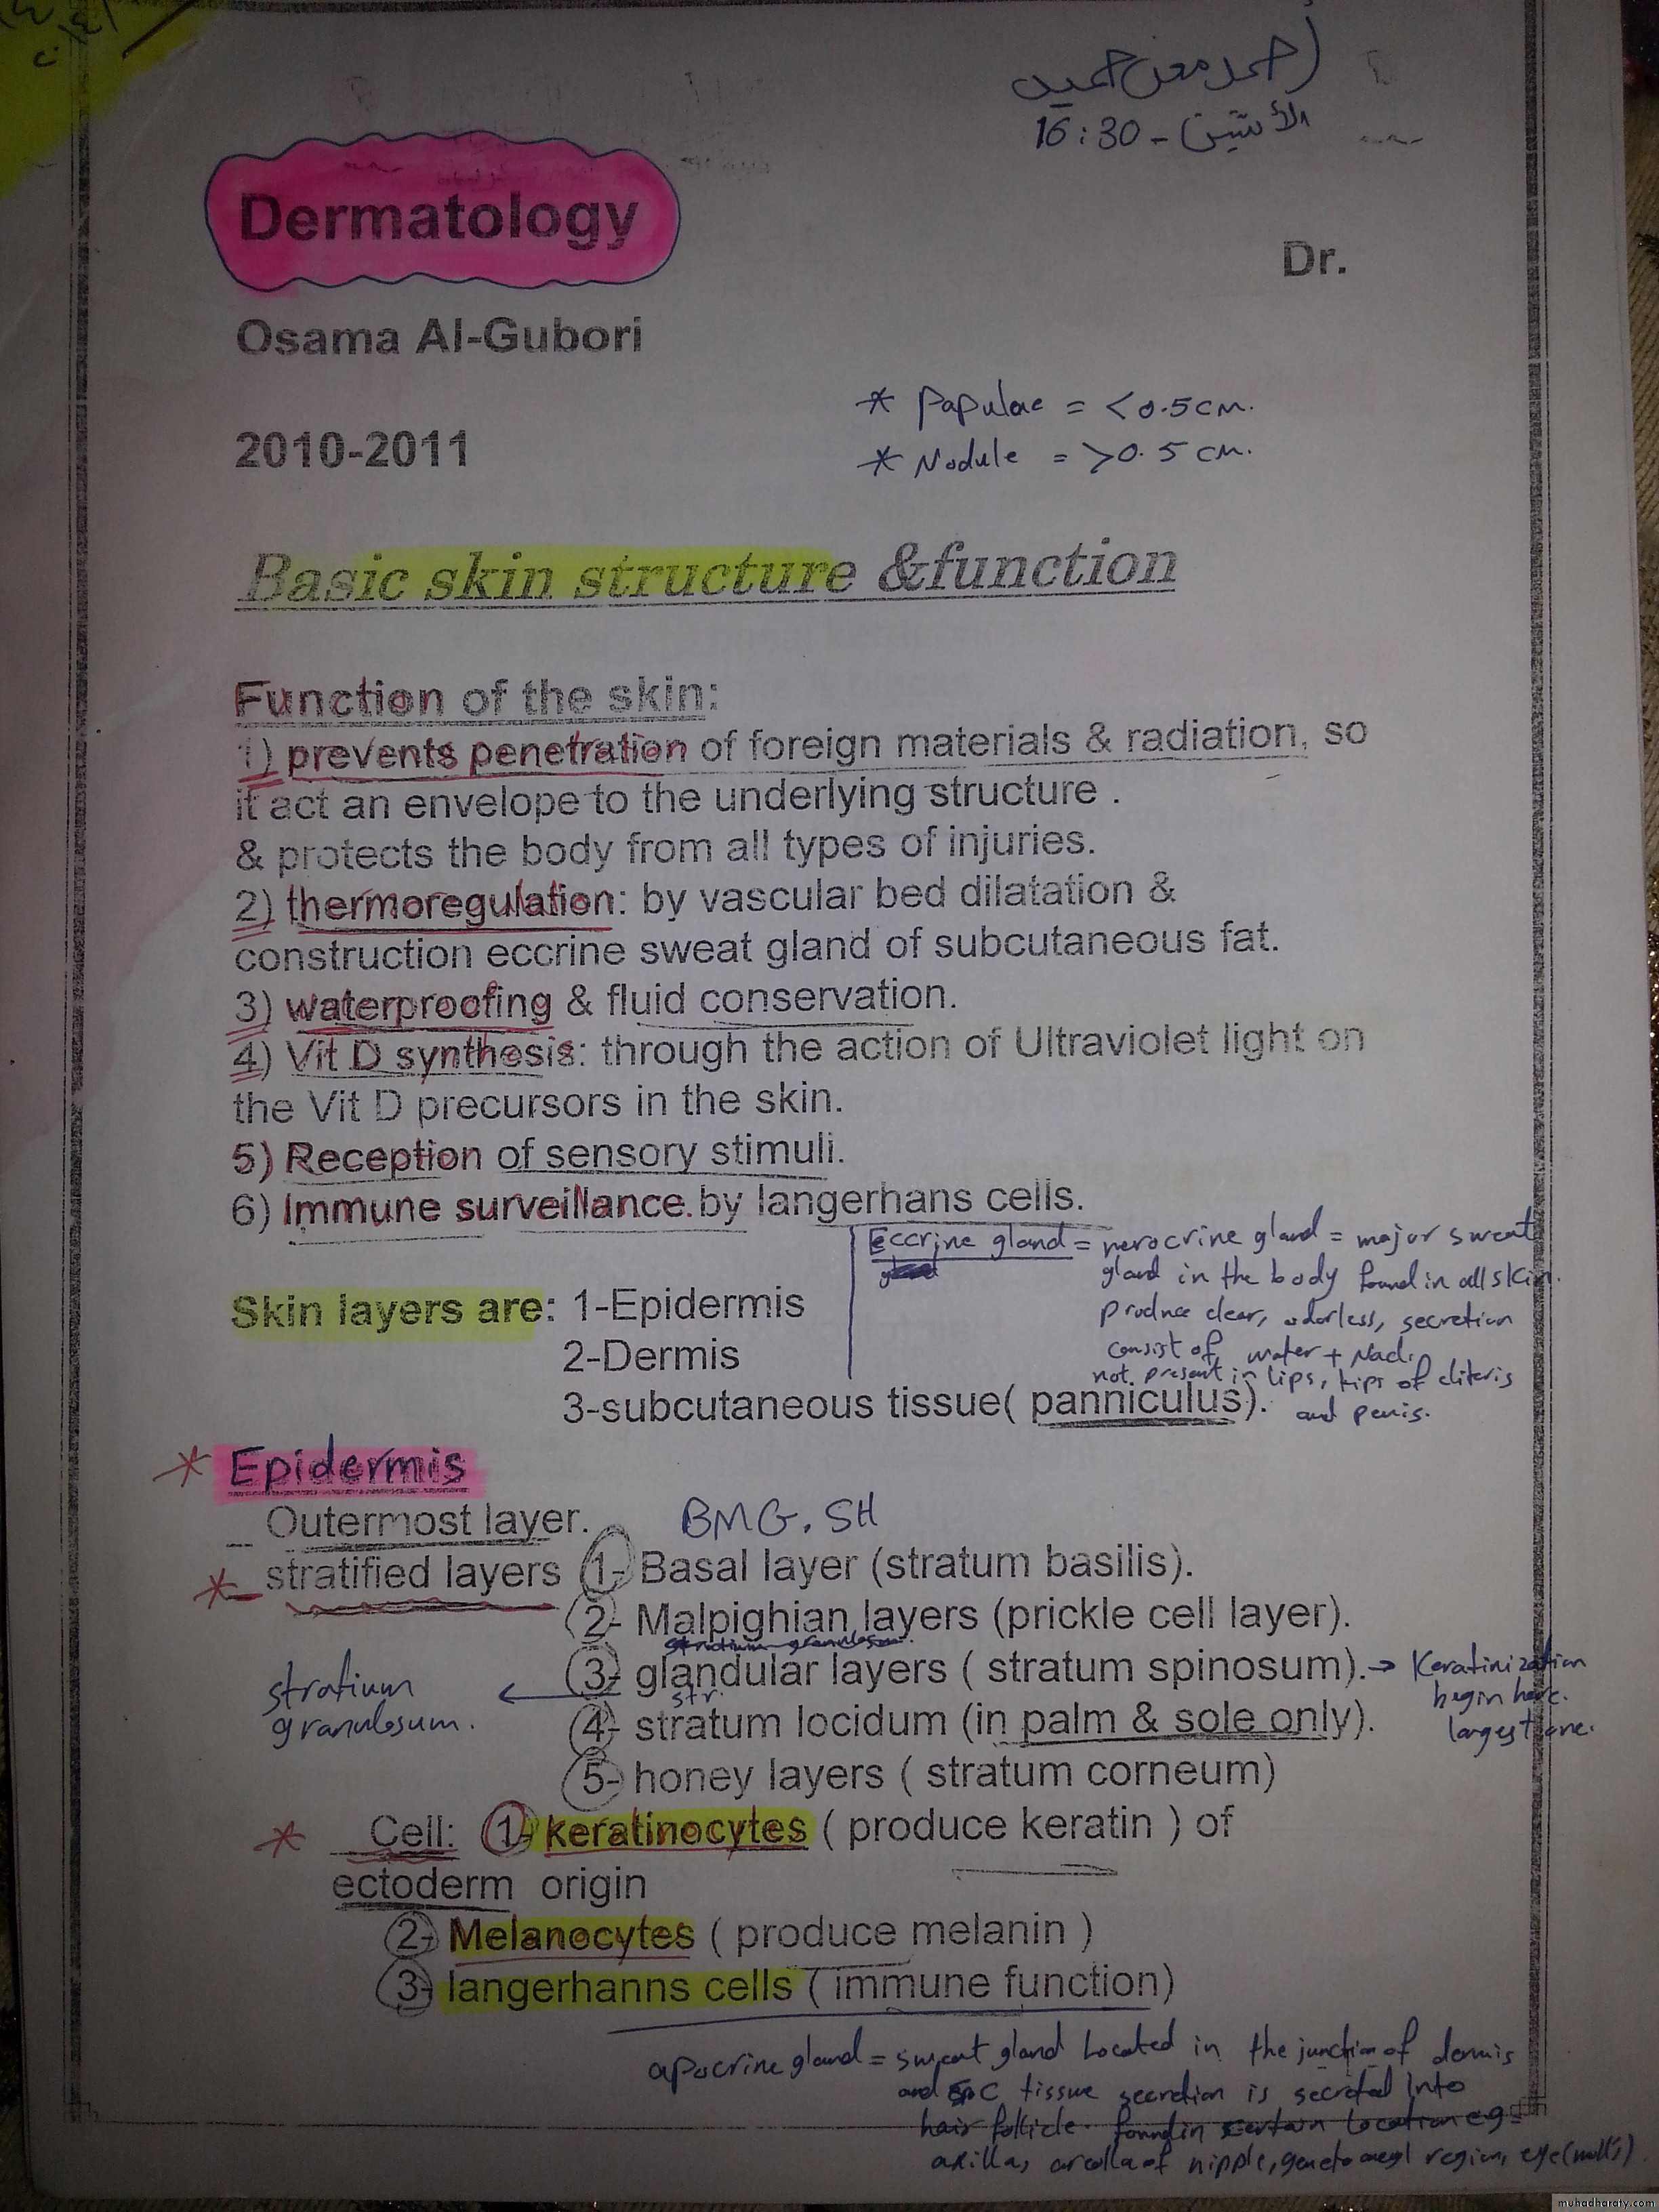 أحمد معن حميد
الأثنين - 16:30
Dermatology
Dr.
Osama Al-Gubori
2010-2011
* Papulae = <0.5cm.
* Nodule = >0.5 cm.
Basic skin structure &function
Function of the skin:
1) prevents penetration of foreign materials & radiation, so
it act an envelope to the underlying structure .
& protects the body from all types of injuries.
2) thermoregulation: by vascular bed dilatation &
construction eccrine sweat gland of subcutaneous fat.
3) waterproofing & fluid conservation.
4) Vit D synthesis: through the action of Ultraviolet light on
the Vit D precursors in the skin.
5) Reception of sensory stimuli.
6) Immune surveillance by langerhans cells.
Eccrine gland = merocrine gland = major sweat
gland in the body found in all skin.
produce clear, odorless, secretion
consist of water + Nacl.
not present in lips, tips of cliteris
and penis.
Skin layers are: 1-Epidermis
2-Dermis
3-subcutaneous tissue( panniculus).
* Epidermis
_ Outermost layer.
BMG. SH
* _ stratified layers 1- Basal layer (stratum basilis).
2- Malpighian layers (prickle cell layer).
stratium granulosum.
3- glandular layers ( stratum spinosum). → Keratinization
begin here.
largest one.
stratium
granulosum.
str.
4- stratum locidum (in palm & sole only).
5- honey layers ( stratum corneum)
* _ Cell: 1- keratinocytes ( produce keratin ) of
ectoderm origin
2- Melanocytes ( produce melanin )
3- langerhanns cells ( immune function)
apocrine gland = sweat gland Located in the junction of dermis
and SC tissue secretion is secreted Into
hair follicle. found in certain location eg=
axilla, areolla of nipple, region, eye (moll's)
muhadharaty.com